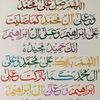 اللهم صل على محمد
وعلى آل محمد كما صليت
على إبراهيم وعلى آل إبراهيم
إنك حميد مجيد
اللهم بارك على محمد
وعلى آل محمد كما باركت على
إبراهيم وعلى آل إبراهيم